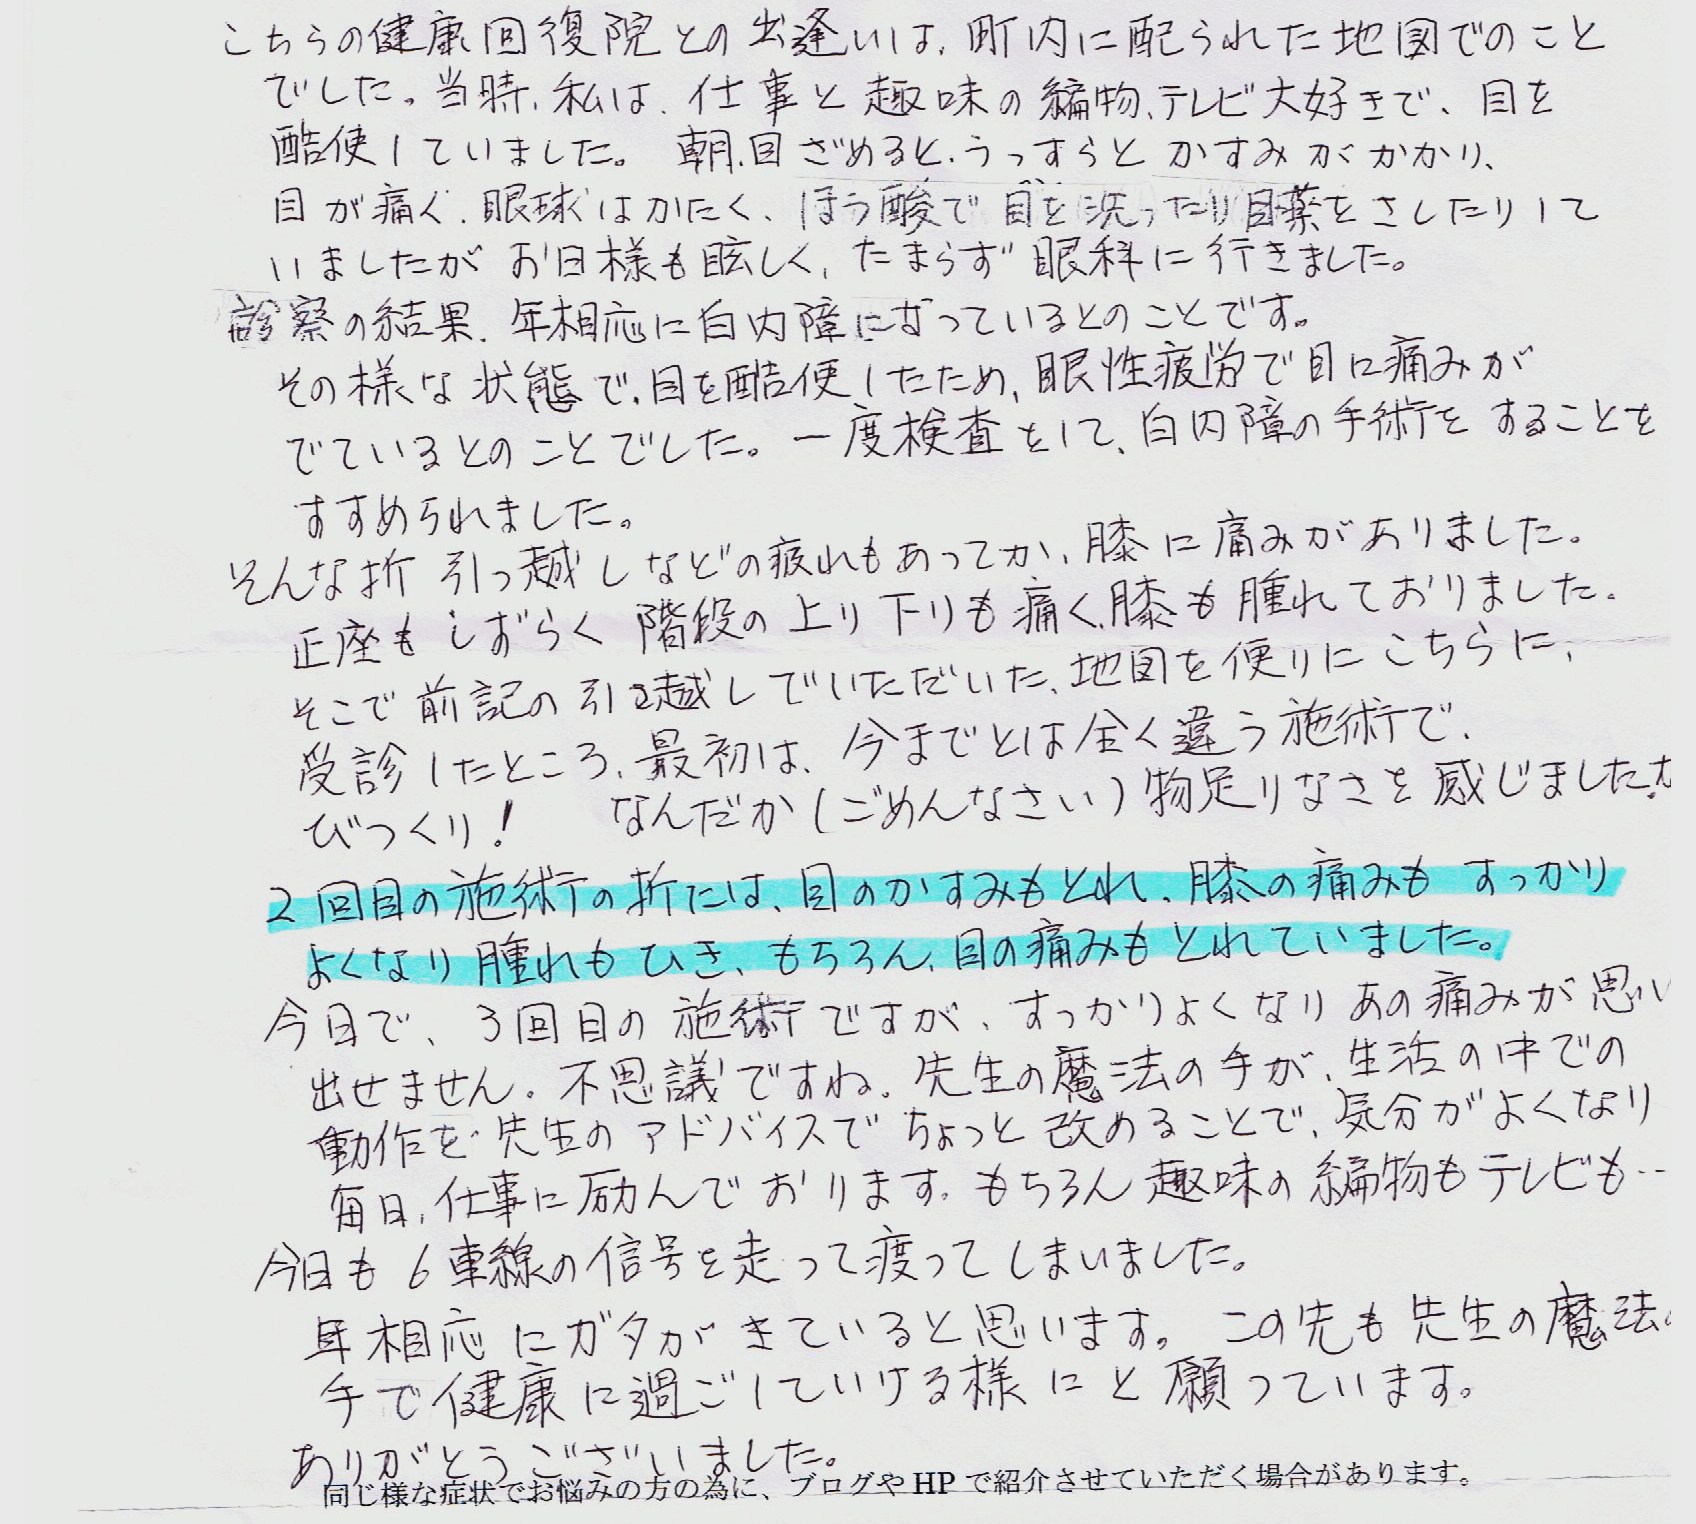 こちらの健康回復院との出逢いは、町内に配られた地図でのこと
でした。当時、私は、仕事と趣味の編物、テレビ大好きで、目を
酷使していました。 朝、目ざめると、うっすらと かすみがかかり、
目が痛く、眼球はかたく、ほう酸で目を洗ったり目薬をさしたりして
いましたが お日様も眩しく、たまらず眼科に行きました。
診察の結果、年相応に白内障になっているとのことです。
その様な状態で、目を酷使したため、眼性疲労で目に痛みが
でているとのことでした。一度検査をして、白内障の手術をすることを
すすめられました。
そんな折 引っ越しなどの疲れもあってか、膝に痛みがありました。
正座もしずらく 階段の上り下りも痛く、膝も腫れておりました。
そこで前記の引き越しでいただいた、地図を便りにこちらに、
受診したところ、最初は、今までとは全く違う施術で、
びっくり! なんだか(ごめんなさい)物足りなさを感じましたが
2回目の施術の折には、目のかすみもとれ、膝の痛みも すっかり
よくなり腫れもひき、もちろん、目の痛みもとれていました。
今日で、3回目の施術ですが、すっかりよくなりあの痛みが思い
出せません。不思議ですね。先生の魔法の手が、生活の中での
動作を先生のアドバイスでちょっと改めることで、気分がよくなり
毎日、仕事に励んでおります。もちろん趣味の編物もテレビも…
今日も6車線の信号を走って渡ってしまいました。
年相応にガタがきていると思います。この先も先生の魔法の
手で健康に過ごしていける様にと願っています。
ありがとうございました。
同じ様な症状でお悩みの方の為に、ブログやHPで紹介させていただく場合があります。